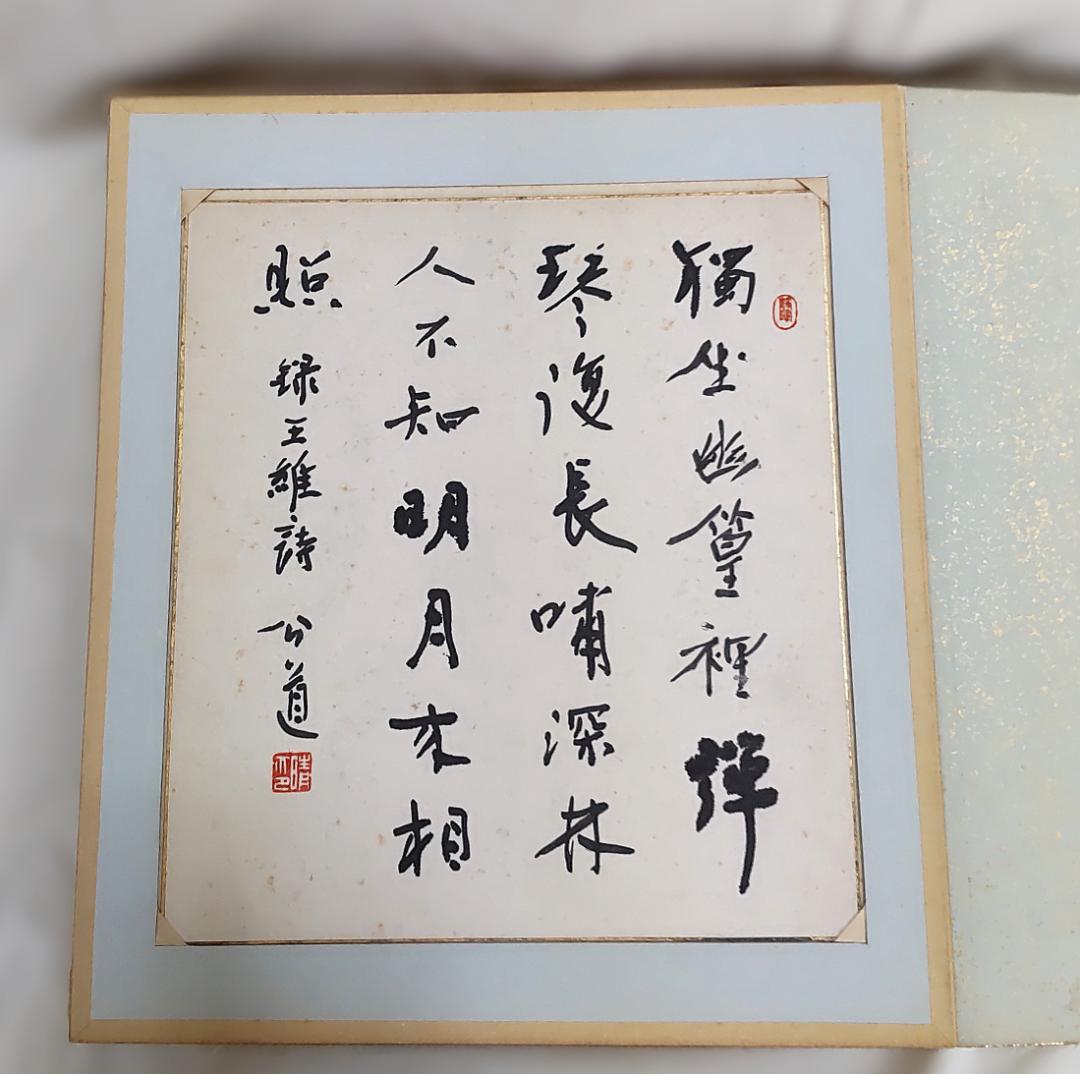 獨坐幽篁裡弹
琴復長嘯深林
人不知明月来相
照 録王維詩 公道